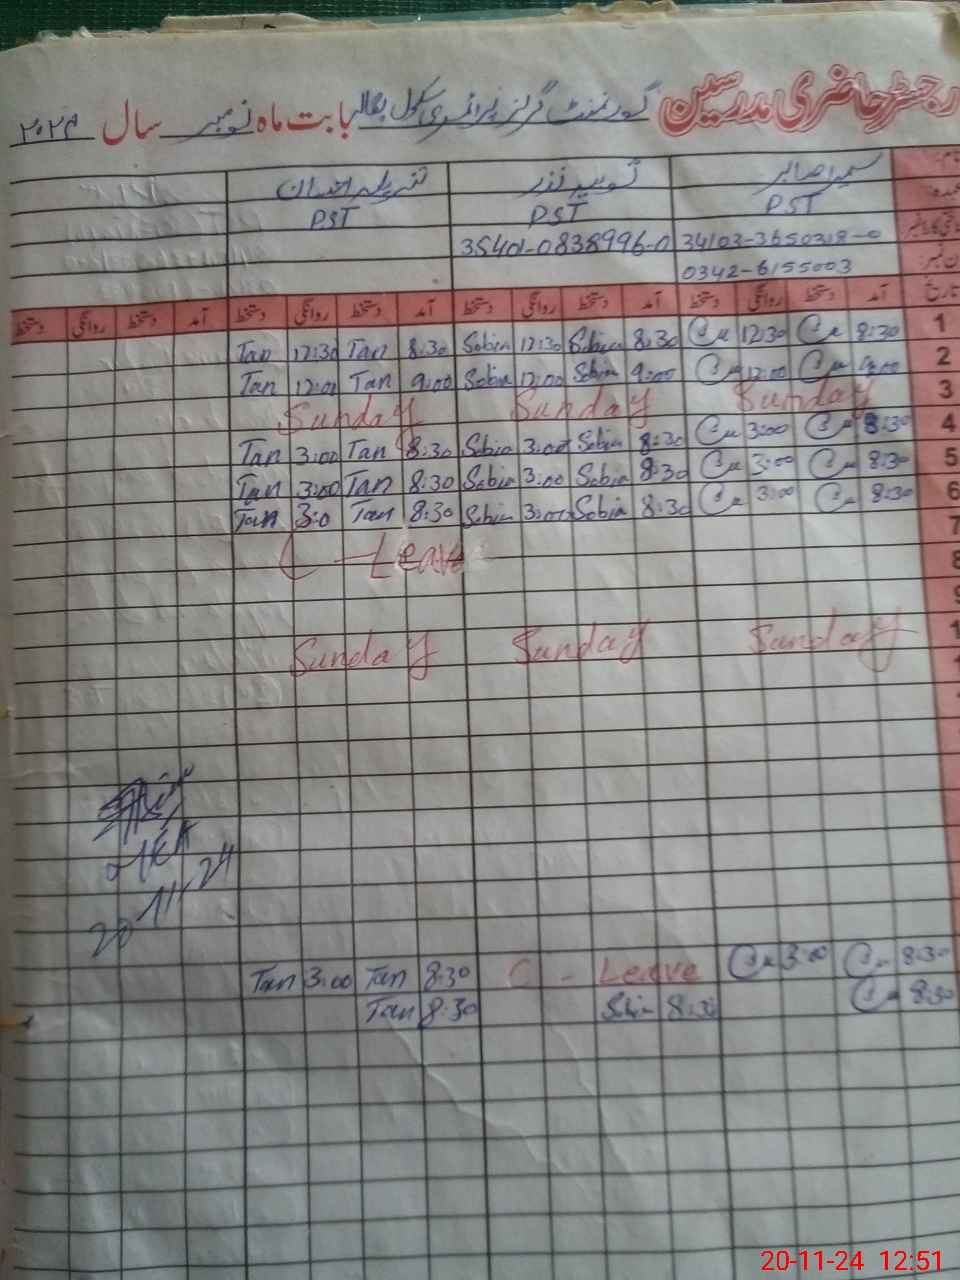 رجسٹر حاضری مدرسین گورنمنٹ گرلز پرائمری سکول بابت ماہ نومبر سال ۲۰۲۴
نام: سمیرا صابر ثوبیہ نذر
عہدہ PST PST PST
34103-3650318-0 35401-0838996-0
ن نمبر: 0342-6155003
تاریخ آمد دستخط روانگی دستخط آمد دستخط روانگی دستخط آمد دستخط روانگی دستخط آمد دستخط روانگی دستخط
Tan 12:30 Tan 8:30 Sobia 12:30 Sobia 8:30 12:30 8:30 1
Tan 12:00 Tan 9:00 Sobia 12:00 Sobia 9:00 12:00 9:00 2
Sunday Sunday Sunday 3
Tan 3:00 Tan 8:30 Sobia 3:00 Sobia 8:30 3:00 8:30 4
Tan 3:00 Tan 8:30 Sobia 3:00 Sobia 8:30 3:00 8:30 5
Tan 3:0 Tan 8:30 Sobia 3:00 Sobia 8:30 3:00 8:30 6
7
C - Leave 8
9
Sunday Sunday Sunday 1
20/11/24
Tan 3:00 Tan 8:30 C - Leave 3:00 8:30
Tan 8:30 Sobia 8:30 8:30
20-11-24 12:51